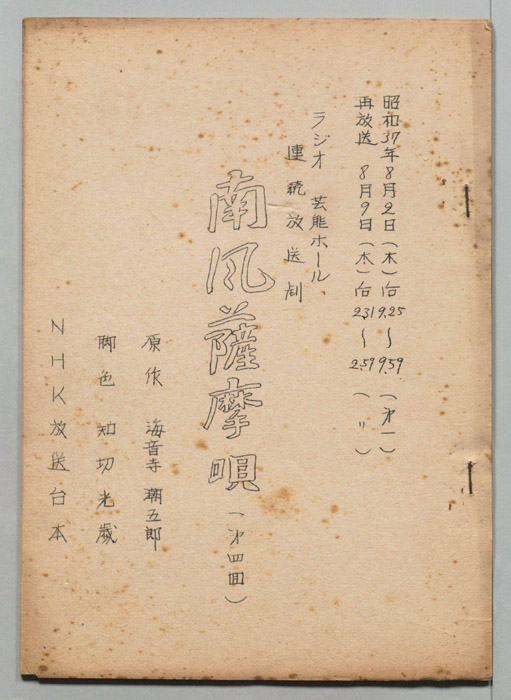 昭和37年8月2日(木)后9.25〜9.59(第一)
再放送 8月9日(木)后2.31〜2.59(〃)
ラジオ 芸能ホール
連続放送劇
南風薩摩唄(第四回)
原作 海音寺潮五郎
脚色 知切光歳
NHK放送台本